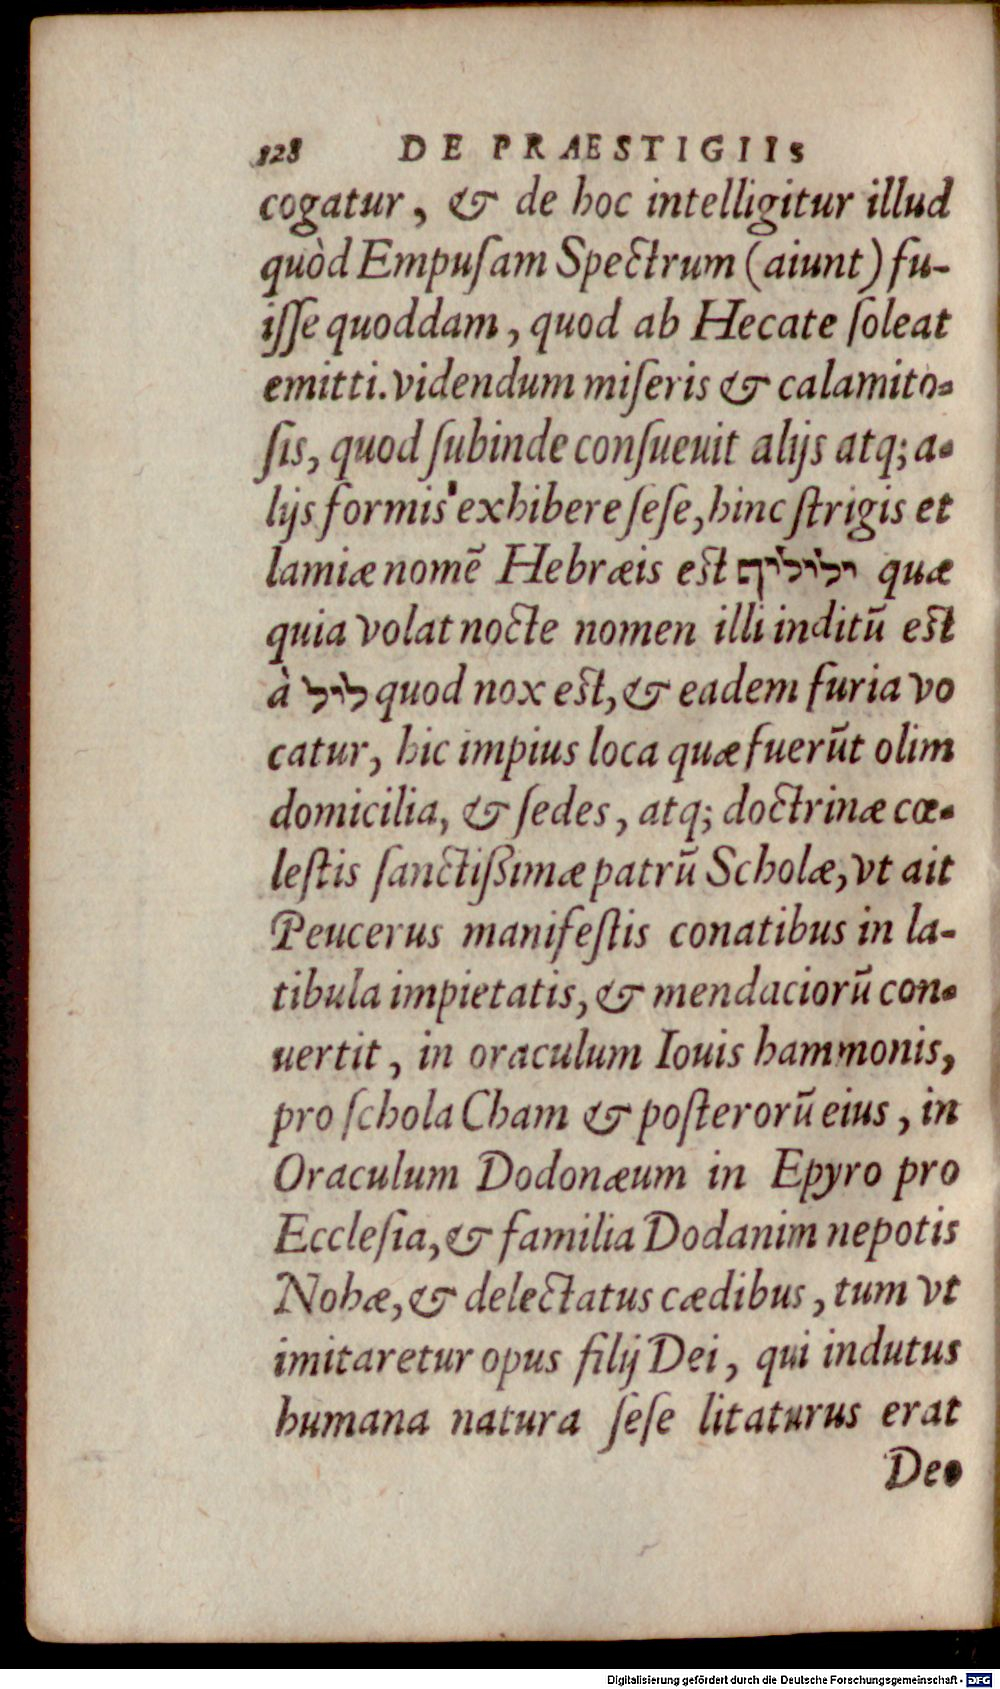 128 DE PRAESTIGIIS
cogatur, & de hoc intelligitur illud
quòd Empuſam Spectrum (aiunt) fu-
iſſe quoddam, quod ab Hecate ſoleat
emitti. videndum miſeris & calamito-
ſis, quod ſubinde conſueuit alijs atq; a-
lijs formis exhibere ſeſe, hinc ſtrigis et
lamiæ nomẽ Hebræis est quæ
quia volat nocte nomen illi inditũ est
à ליל quod nox est, & eadem furia vo
catur, hic impius loca quæ fuerũt olim
domicilia, & ſedes, atq; doctrinæ cœ-
leſtis ſanctißimæ patrũ Scholæ, vt ait
Peucerus manifeſtis conatibus in la-
tibula impietatis, & mendaciorũ con-
uertit, in oraculum Iouis hammonis,
pro ſchola Cham & poſterorũ eius, in
Oraculum Dodonæum in Epyro pro
Eccleſia, & familia Dodanim nepotis
Nohæ, & delectatus cædibus, tum vt
imitaretur opus filij Dei, qui indutus
humana natura ſeſe litaturus erat
Deo
Digitalisierung gefördert durch die Deutsche Forschungsgemeinschaft - DFG